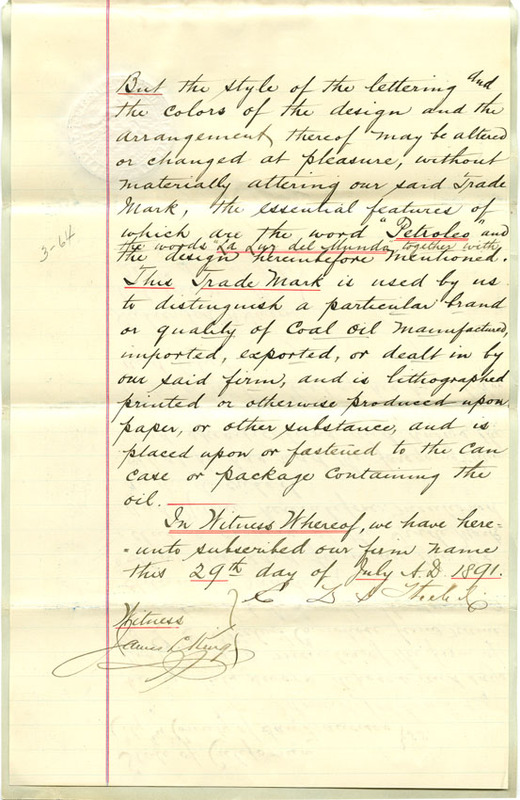 But the style of the lettering and
the colors of the design and the
arrangement thereof may be altered
or changed at pleasure, without
materially altering our said Trade
Mark, the essential features of
which are the word "Petroleo" and
the words "La Luz del Mundo, together with
the design hereinbefore mentioned.
This Trade Mark is used by us
to distinguish a particular brand
or quality of Coal Oil manufactured,
imported, exported, or dealt in by
our said firm, and is lithographed
printed or otherwise produced upon
paper, or other substance, and is
placed upon or fastened to the can
case or package containing the
oil.
In Witness Whereof, we have here=
=unto subscribed our firm name
this 29th day of July A.D. 1891.
Witness
James C King
3-64